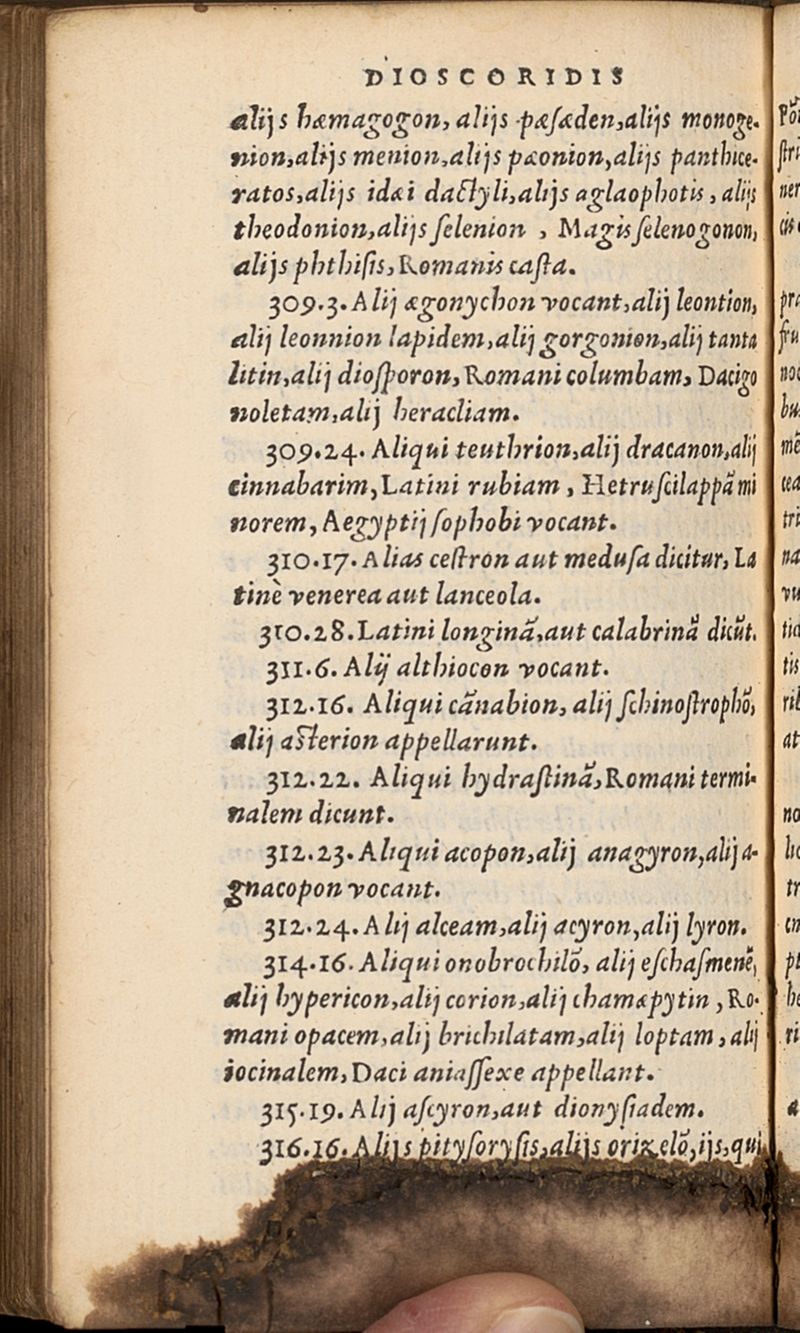 DIOSCORIDIS
alijs hæmagogon, alijs pæsæden,alijs monoge-
nion,alijs menion,alijs pæonion,alijs panthice-
ratos,alijs idæi dactyli,alijs aglaophotis, alijs
theodonion,alijs selenion , Magis selenogonon,
alijs phthisis,Romanis casta.
309.3. Alij ægonychon vocant,alij leontion,
alij leonnion lapidem,alij gorgonion,alij tanta
litin,alij diosporon, Romani columbam, Dacigo
noletam,alij heracliam.
309.24. Aliqui teuthrion,alij dracanon,alij
cinnabarim, Latini rubiam , Hetruscilappā mi
norem, Aegyptij sophobi vocant.
310.17. Alias cestron aut medusa dicitur, La
tinè venerea aut lanceola.
310.28. Latini longinā,aut calabrinā dicūt.
311.6. Alij althiocon vocant.
312.16. Aliqui cānabion, alij schinostrophō,
alij asterion appellarunt.
312.22. Aliqui hydrastinā,Romani termi-
nalem dicunt.
312.23. Aliqui acopon,alij anagyron,alij a-
gnacopon vocant.
312.24. Alij alceam,alij acyron,alij lyron.
314.16. Aliqui onobrochilō, alij eschasmenē,
alij hypericon,alij corion,alij chamæpytin , Ro-
mani opacem,alij brichilatam,alij loptam , alij
iocinalem, Daci aniassexe appellant.
315.19. Alij ascyron,aut dionysiadem.
316.16. Alijs pitysorysis,alijs orizelō,ijs,qui